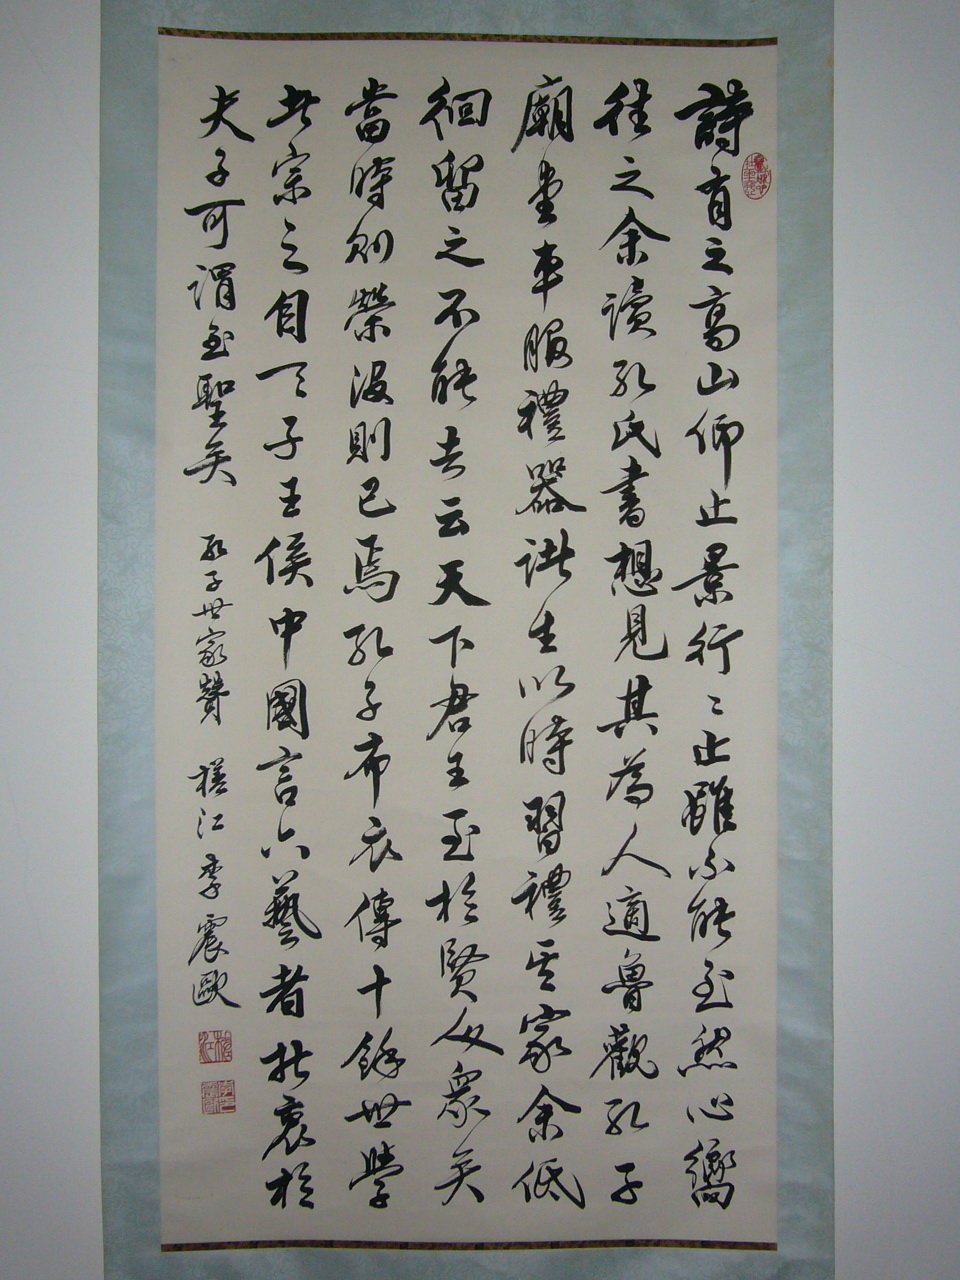 詩有之高山仰止景行〻止雖不能至然心嚮
往之余讀孔氏書想見其為人適魯觀孔子
廟堂車服禮器諸生以時習禮其家余低
徊留之不能去云天下君王至於賢人眾矣
當時則榮沒則已焉孔子布衣傳十餘世學
者宗之自天子王侯中國言六藝者折衷於
夫子可謂至聖矣 孔子世家贊 槎江李震歐